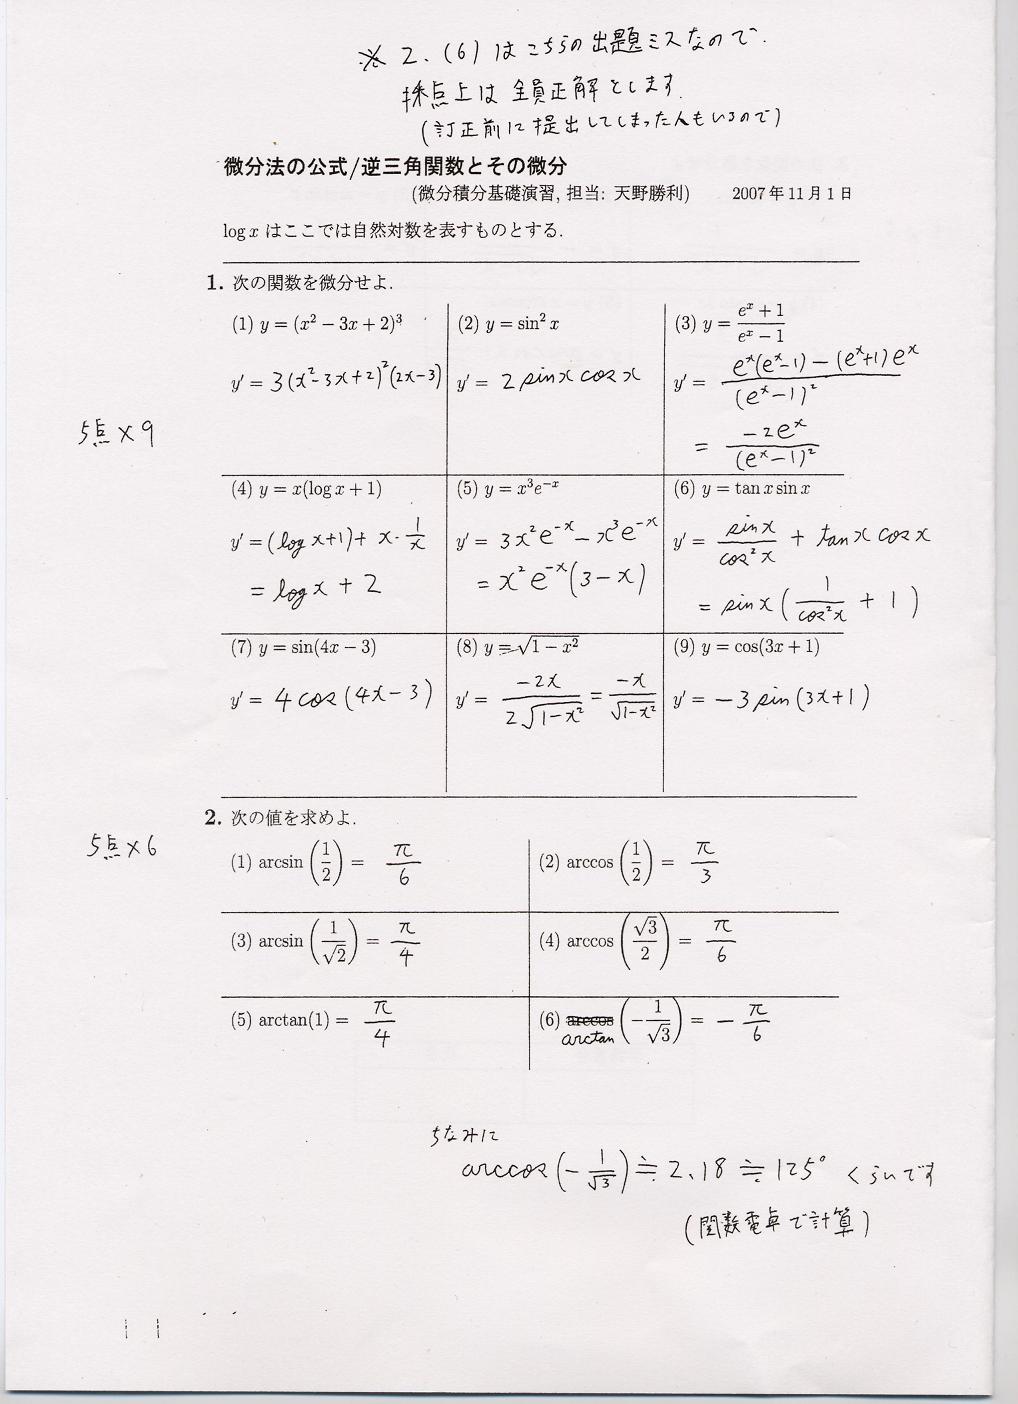 ※ 2. (6) はこちらの出題ミスなので.
採点上は全員正解とします.
(訂正前に提出してしまった人もいるので)
微分法の公式/逆三角関数とその微分
(微分積分基礎演習, 担当: 天野勝利) 2007年11月1日
log x はここでは自然対数を表すものとする.
1. 次の関数を微分せよ.
5点×9
(1) y = (x² − 3x + 2)³
y' = 3(x²−3x+2)²(2x−3)
(2) y = sin² x
y' = 2 sin x cos x
(3) y = (eˣ + 1)/(eˣ − 1)
y' = (eˣ(eˣ−1) − (eˣ+1)eˣ)/(eˣ−1)²
= −2eˣ/(eˣ−1)²
(4) y = x(log x + 1)
y' = (log x+1) + x · 1/x
= log x + 2
(5) y = x³e⁻ˣ
y' = 3x²e⁻ˣ − x³e⁻ˣ
= x²e⁻ˣ(3−x)
(6) y = tan x sin x
y' = sin x/cos² x + tan x cos x
= sin x (1/cos² x + 1)
(7) y = sin(4x − 3)
y' = 4 cos (4x−3)
(8) y = √(1 − x²)
y' = −2x/(2√(1−x²)) = −x/√(1−x²)
(9) y = cos(3x + 1)
y' = −3 sin (3x+1)
2. 次の値を求めよ.
5点×6
(1) arcsin (1/2) = π/6
(2) arccos (1/2) = π/3
(3) arcsin (1/√2) = π/4
(4) arccos (√3/2) = π/6
(5) arctan(1) = π/4
(6) arccos (−1/√3) = − π/6
arctan
ちなみに
arccos (− 1/√3) ≒ 2.18 ≒ 125° くらいです
(関数電卓で計算)